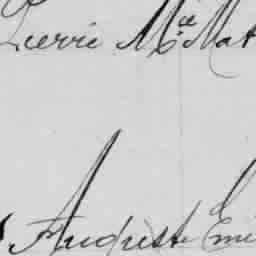 Pierre M.ie Mat
Auguste Emi